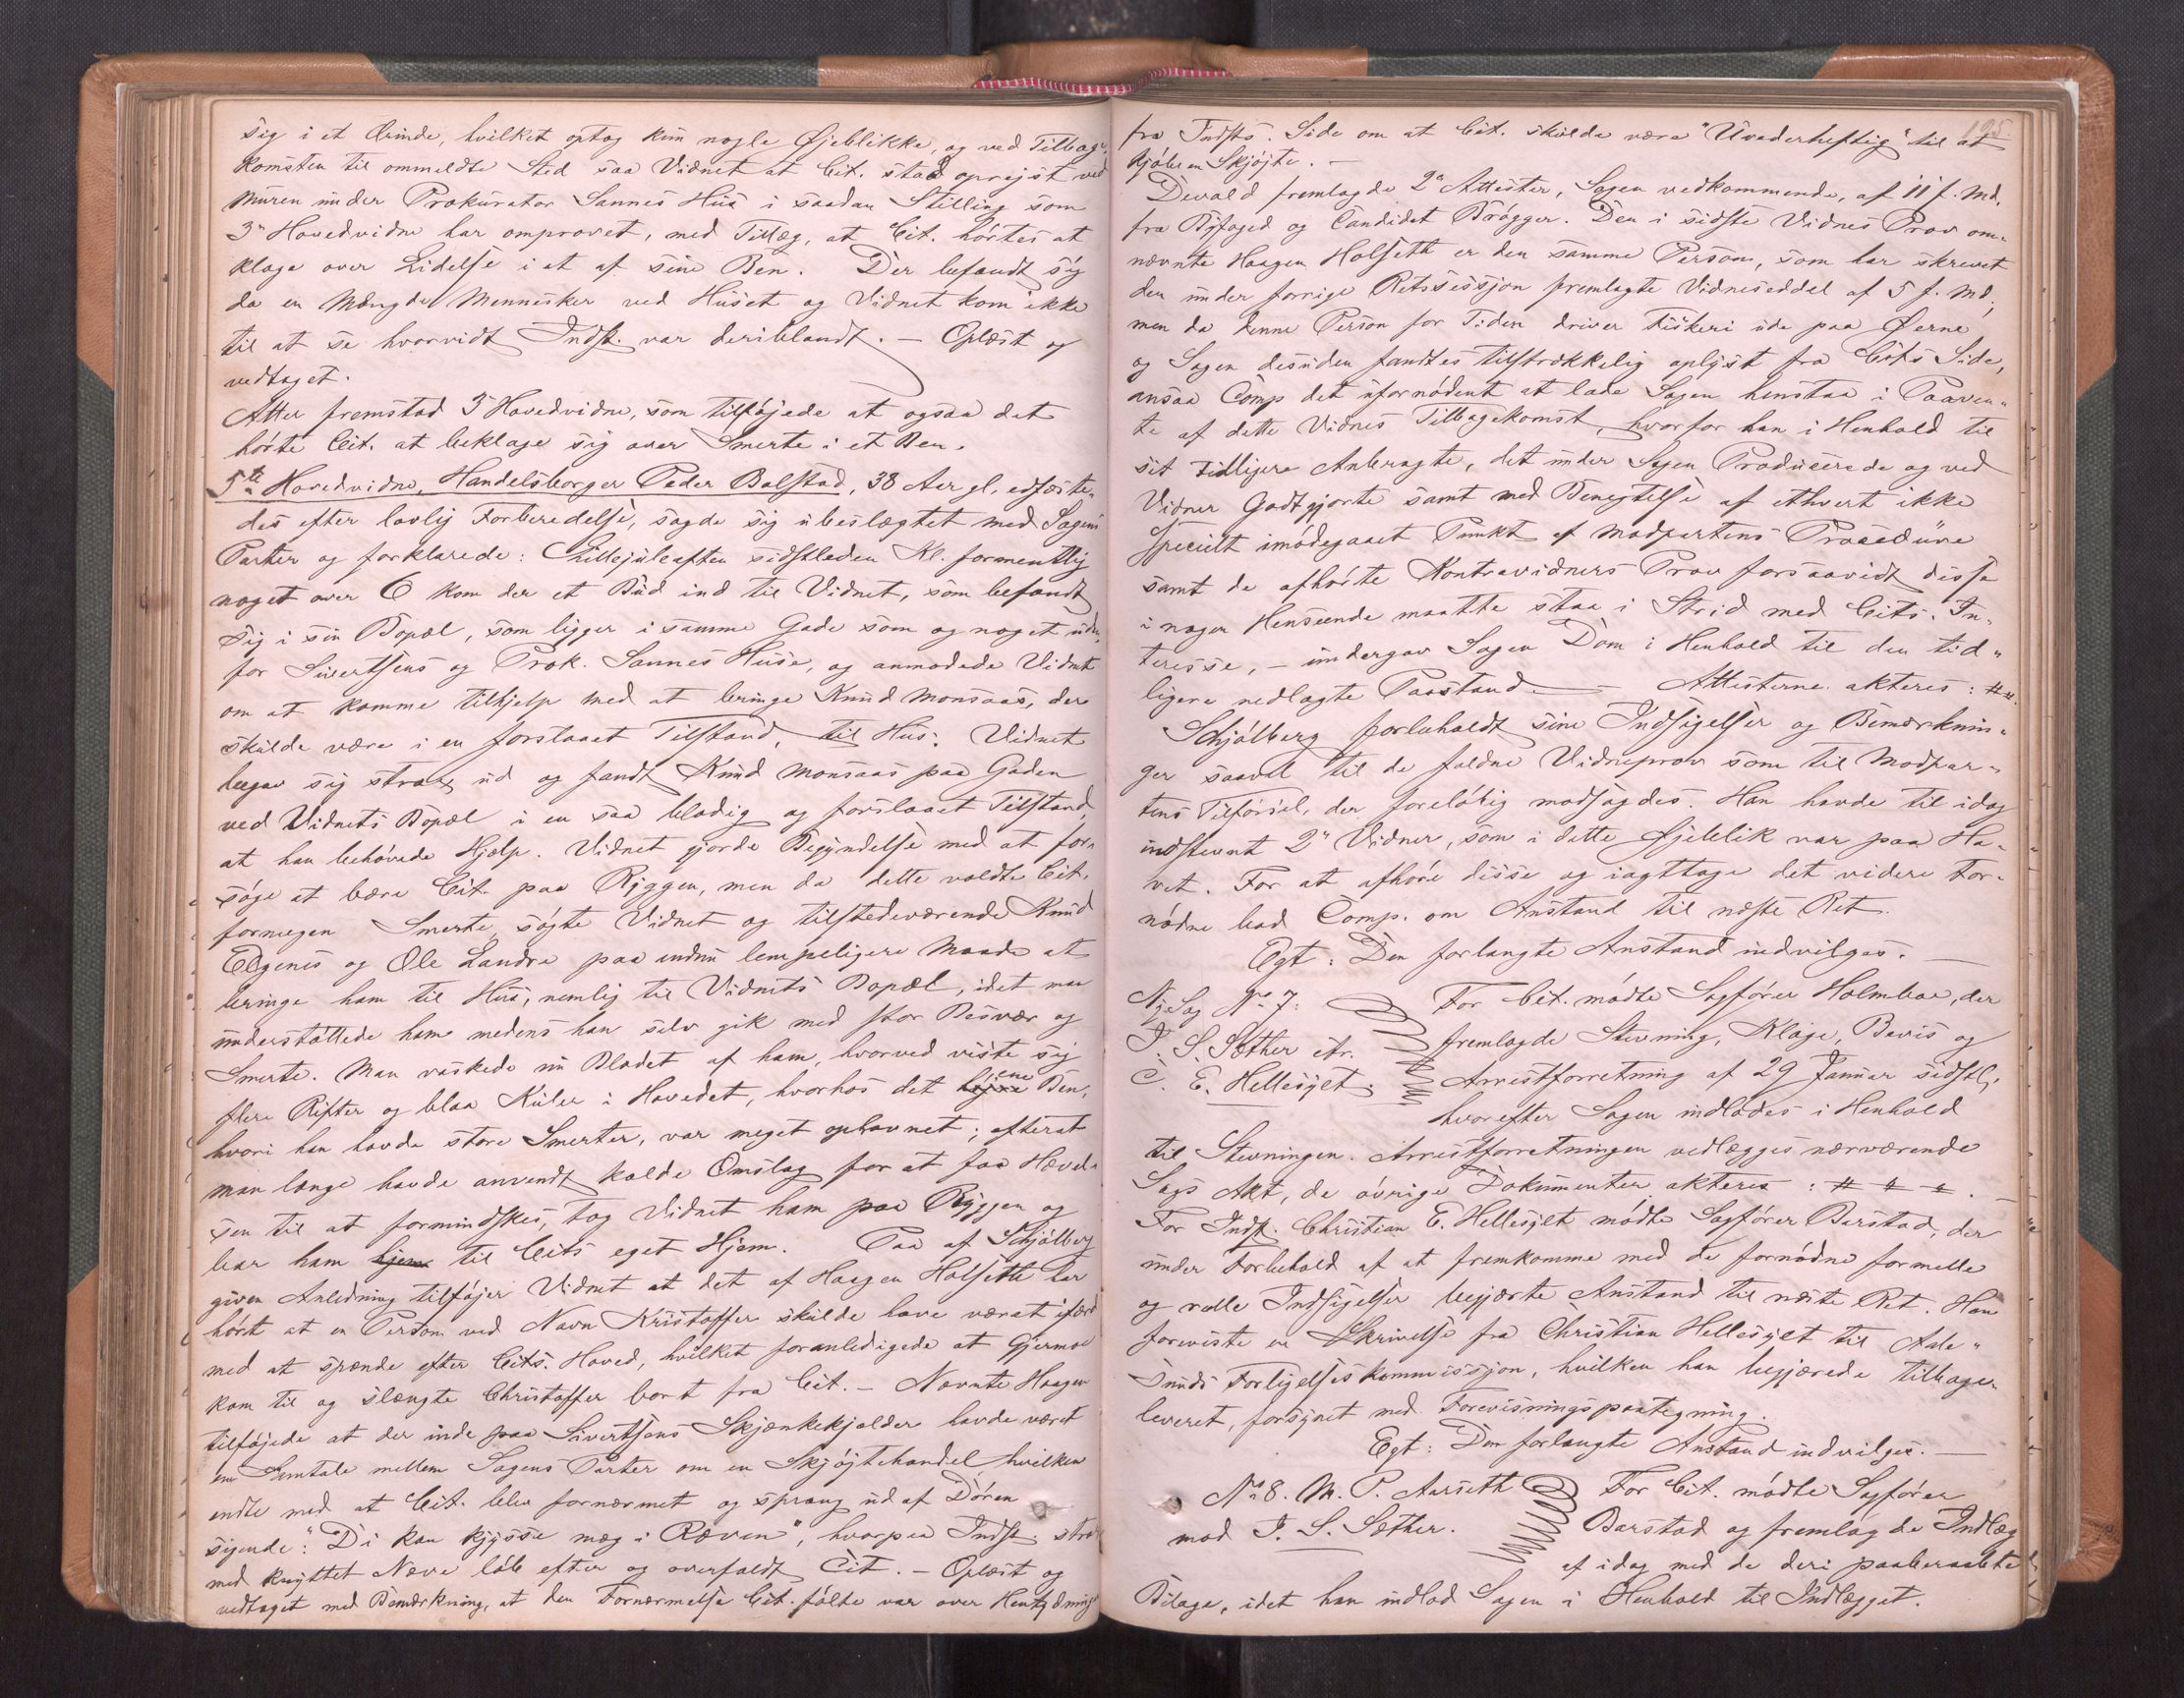 sig i et Ærinde, hvilket optog kun nogle Øjeblikke, og ved Tilbage-
komsten til ommeldte Sted saa Vidnet at Cit. stod oprejst ved
Muren under Prokurator Sannes Hus i saadan Stilling som
3die Hovedvidne har omprovet, med Tillæg, at Cit. hørtes at
klage over Lidelse i et af sine Ben. Der befandt sig
da en Mængde Mennesker ved Huset og Vidnet kom ikke
til at se hvorvidt Indst. var deriblandt. — Oplæst og
vedtaget.
Atter fremstod 3 Hovedvidne, som tilføjede at ogsaa det
hørte Cit. at beklage sig over Smerte i et Ben.
5te Hovedvidne, Handelsborger Peder Bolstad, 38 Aar gl, edfæste-
des efter lovlig Forberedelse, sagde sig ubeslægtet med Sagens
Parter og forklarede: Lillejuleaften sidstleden Kl. formentlig
noget over 6 kom der et Bud ind til Vidnet, som befandt
sig i sin Bopæl, som ligger i samme Gade som og noget uden-
for Sivertsens og Prok. Sannes Huse, og anmodede Vidnet
om at komme tilhjelp med at bringe Knud Monsaas, der
skulde være i en forslaaet Tilstand, til Hus. Vidnet
begav sig strax ud og fandt Knud Monsaas paa Gaden
ved Vidnets Bopæl i en saa blodig og forslaaet Tilstand,
at han behøvede Hjælp. Vidnet gjorde Begyndelse med at for-
søge at bære Cit. paa Ryggen, men da dette voldte Cit.
formegen Smerte, søgte Vidnet og tilstedeværende Knud
og Ole Landre paa endnu lempeligere Maade at
bringe ham til Hus, nemlig til Vidnets Bopæl, idet man
understøttede ham medens han selv gik med stor Besvær og
Smerte. Man vaskede nu Blodet af ham, hvorved viste sig
flere Rifter og blaa Kuler i Hovedet, hvorhos det ene Ben,
hvori han havde store Smerter, var meget ophovnet; efterat
man længe havde anvendt kolde Omslag for at faa Hævel-
sen til at formindskes, tog Vidnet ham paa Ryggen og
bar ham hjem til Cits eget Hjem. Paa af Schjølberg
given Anledning tilføjer Vidnet at det af Haagen Holseth har
hørt at en Person ved Navn Kristoffer skulde have været ifærd
med at spænde efter Cits. Hoved, hvilket foranledigede at Gjermoe
kom til og slængte Christoffer bort fra Cit. — Nævnte Haagen
tilføjede at der inde paa Sivertsens Skjænkekjelder havde været
en Samtale mellem Sagens Parter om en Skjøjtehandel, hvilken
endte med at Cit. blev fornærmet og sprang ud af Døren
sigende: "Di kan kjysse mæg i Ræven", hvorpaa Indst. strax
med knyttet Næve løb efter og overfaldt Cit. — Oplæst og
vedtaget med Bemærkning, at den Fornærmelse Cit. følte var over Hentydning
195.
fra Indsts. Side om at Cit. skulde være "Uvederheftig" til at
kjøbe en Skjøjte. —
Devold fremlagde 2de Attester, Sagen vedkommende, af 11 f. Md.
fra Byfoged og Candidat Brøgger. Den i sidste Vidnes Prov om-
nævnte Haagen Holseth er den samme Person, som har skrevet
den under forrige Retssession fremlagte Vidneseddel af 5 f. Md,
men da denne Person for Tiden driver Fiskeri ude paa Øerne
og Sagen desuden fandtes tilstrækkelig oplyst fra Cits Side,
ansaa Comp det ufornødent at lade Sagen henstaa i Paaven-
te af dette Vidnes Tilbagekomst, hvorfor han i Henhold til
sit tidligere Anbragte, det under Sagen Producerede og ved
Vidner Godtgjorte samt med Benegtelse af ethvert ikke
specielt imødegaaet Punkt af Modpartens Procedure
samt de afhørte Kontravidners Prov forsaavidt disse
i nogen Henseende maatte staa i Strid med Cits. In-
teresse, — undergav Sagen Dom i Henhold til den tid-
ligere nedlagte Paastand. — Attesterne akteres: ##.
Schjølberg forbeholdt sine Indsigelser og Bemærknin-
ger saavel til de faldne Vidneprov som til Modpar-
tens Tilførsel, der foreløbig modsagdes. Han havde til idag
indstevnt 2de Vidner, som i dette Øjeblik var paa Ha-
vet. For at afhøre disse og iagttage det videre For-
nødne bad Comp. om Anstand til næste Ret.
Egt: Den forlangte Anstand indvilges. —
Ny Sag No 7:
I. S. Sæther ctr.
C. E. Hellesylt.
For Cit. mødte Sagfører Holmboe, der
fremlagde Stevning, Klage, Bevis og
Arrestforretning af 29 Januar sidstl,
hvorefter Sagen indlodes i Henhold
til Stevningen. Arrestforretningen vedlægges nærværende
Sags Akt, de øvrige Dokumenter akteres: # # #. —
For Indst. Christian E. Hellesylt mødte Sagfører Barstad, der
under Forbehold af at fremkomme med de fornødne formelle
og reelle Indsigelser begjærte Anstand til næste Ret. Han
foreviste en Skrivelse fra Christian Hellesylt til Aale-
sunds Forligelseskommission, hvilken han begjærede tilbage-
leveret, forsynet med Forevisningspaategning.
Egt: Den forlangte Anstand indvilges. —
No 8. M. P. Aarseth
mod I. S. Sæther.
For Cit. mødte Sagfører
Barstad og fremlagde Indlæg
af idag med de deri paaberaabte
Bilage, idet han indlod Sagen i Henhold til Indlægget.